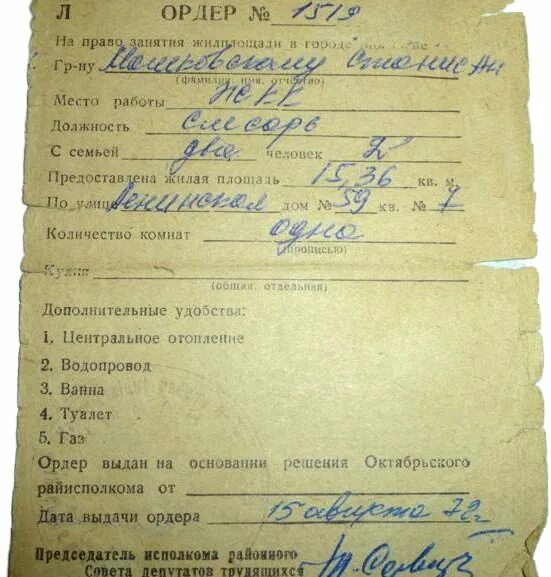 Л ОРДЕР № 1519
На право занятия жилплощади в городе
Гр-ну Машковскому Станисл
(фамилия, имя, отчество)
Место работы ЖСКК
Должность слесарь
С семьей два человек 2
Предоставлена жилая площадь 15,36 кв. м.
По улице Ленинской дом № 59 кв. № 7
Количество комнат одна
(прописью)
Кухня
(общая, отдельная)
Дополнительные удобства:
1. Центральное отопление
2. Водопровод
3. Ванна
4. Туалет
5. Газ
Ордер выдан на основании решения Октябрьского
райисполкома от
Дата выдачи ордера 15 августа 72г
Председатель исполкома районного
Совета депутатов трудящихся